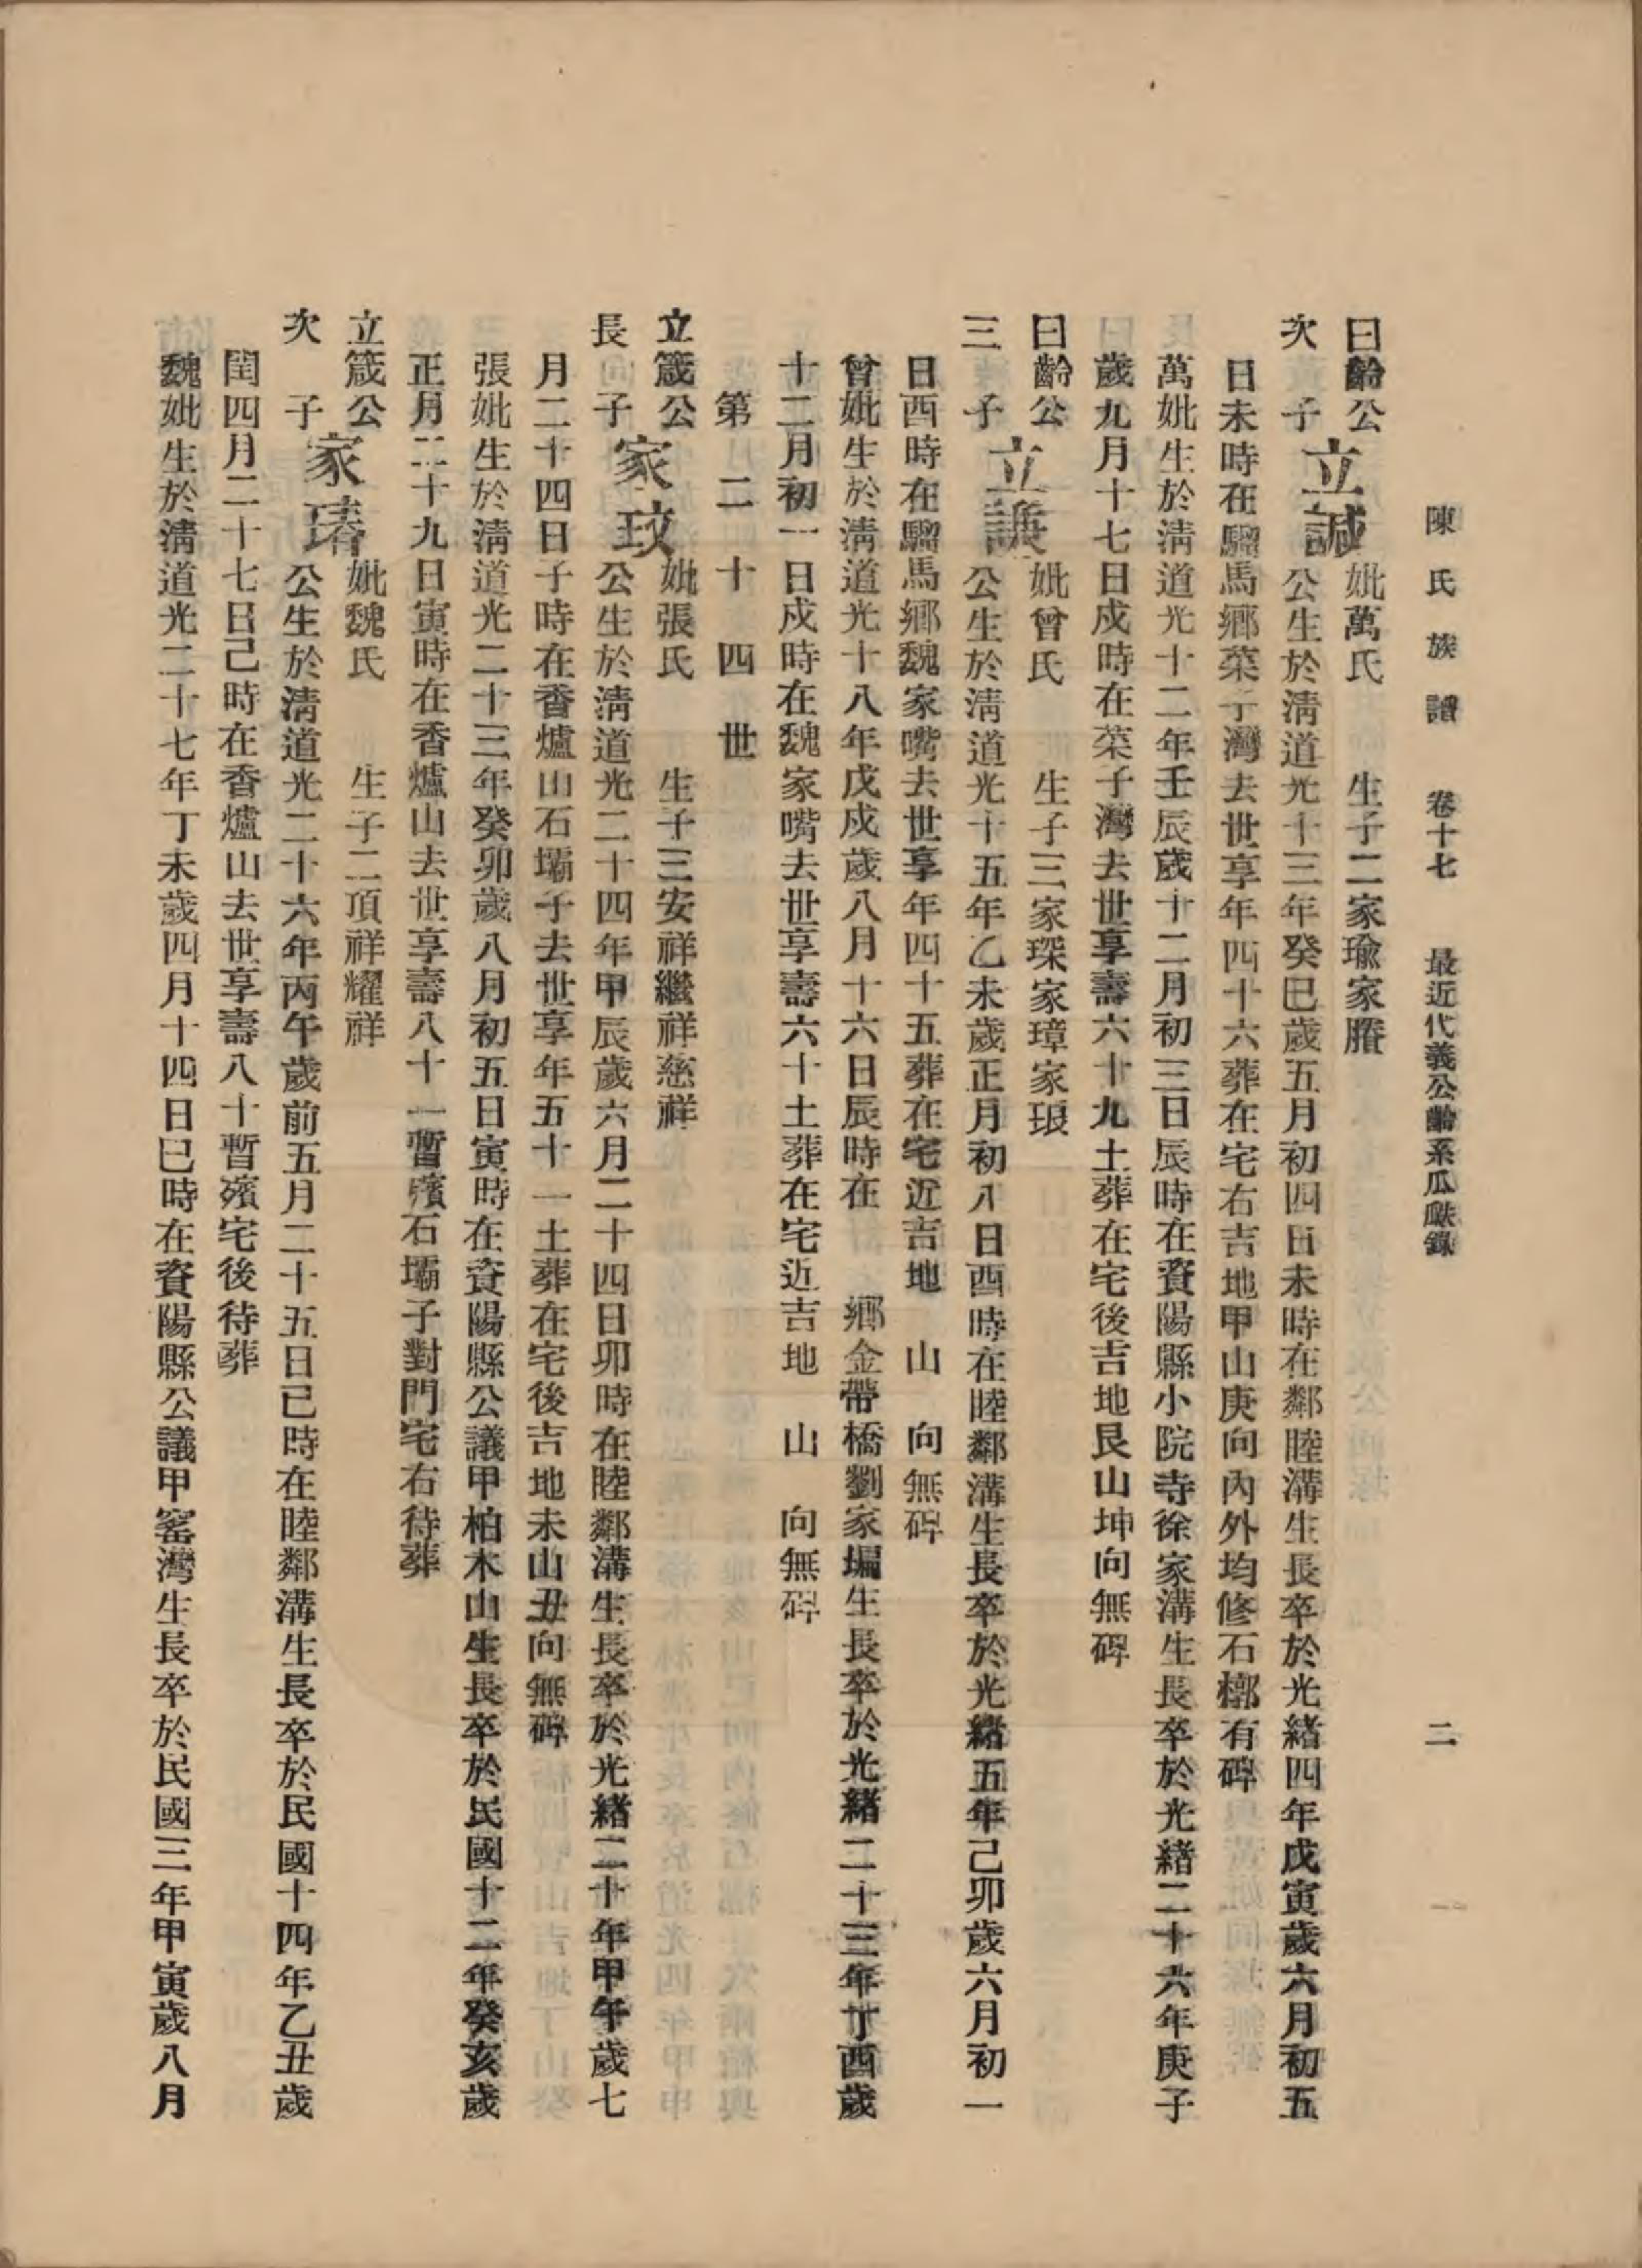 陳氏族譜　卷十七　最近代義公齡系瓜瓞錄　二
曰齡公　妣萬氏　生子二家瑜家賸
次子　立諴　公生於清道光十三年癸巳歲五月初四日未時在鄰睦溝生長卒於光緒四年戊寅歲六月初五
日未時在騮馬鄉菜子灣去世享年四十六葬在宅右吉地甲山庚向內外均修石槨有碑
萬妣生於清道光十二年壬辰歲十二月初三日辰時在資陽縣小院寺徐家溝生長卒於光緒二十六年庚子
歲九月十七日戌時在菜子灣去世享壽六十九土葬在宅後吉地艮山坤向無碑
曰齡公　妣曾氏　生子三家琛家璋家琅
三子　立謨　公生於清道光十五年乙未歲正月初八日酉時在睦鄰溝生長卒於光緒五年己卯歲六月初一
日酉時在騮馬鄉魏家嘴去世享年四十五葬在宅近吉地　山　向無碑
曾妣生於清道光十八年戊戌歲八月十六日辰時在　　鄉金帶橋劉家塥生長卒於光緒二十三年丁酉歲
十二月初一日戌時在魏家嘴去世享壽六十土葬在宅近吉地　山　向無碑
第二十四世
立箴公　妣張氏　生子三安祥繼祥慈祥
長子　家玟　公生於清道光二十四年甲辰歲六月二十四日卯時在睦鄰溝生長卒於光緒二十年甲午歲七
月二十四日子時在香爐山石壩子去世享年五十一土葬在宅後吉地未山丑向無碑
張妣生於清道光二十三年癸卯歲八月初五日寅時在資陽縣公議甲柏木山生長卒於民國十二年癸亥歲
正月二十九日寅時在香爐山去世享壽八十一暫殯石壩子對門宅右待葬
立箴公　妣魏氏　生子二項祥耀祥
次子　家瑃　公生於清道光二十六年丙午歲前五月二十五日巳時在睦鄰溝生長卒於民國十四年乙丑歲
閏四月二十七日己時在香爐山去世享壽八十暫殯宅後待葬
魏妣生於清道光二十七年丁未歲四月十四日巳時在資陽縣公議甲窰灣生長卒於民國三年甲寅歲八月